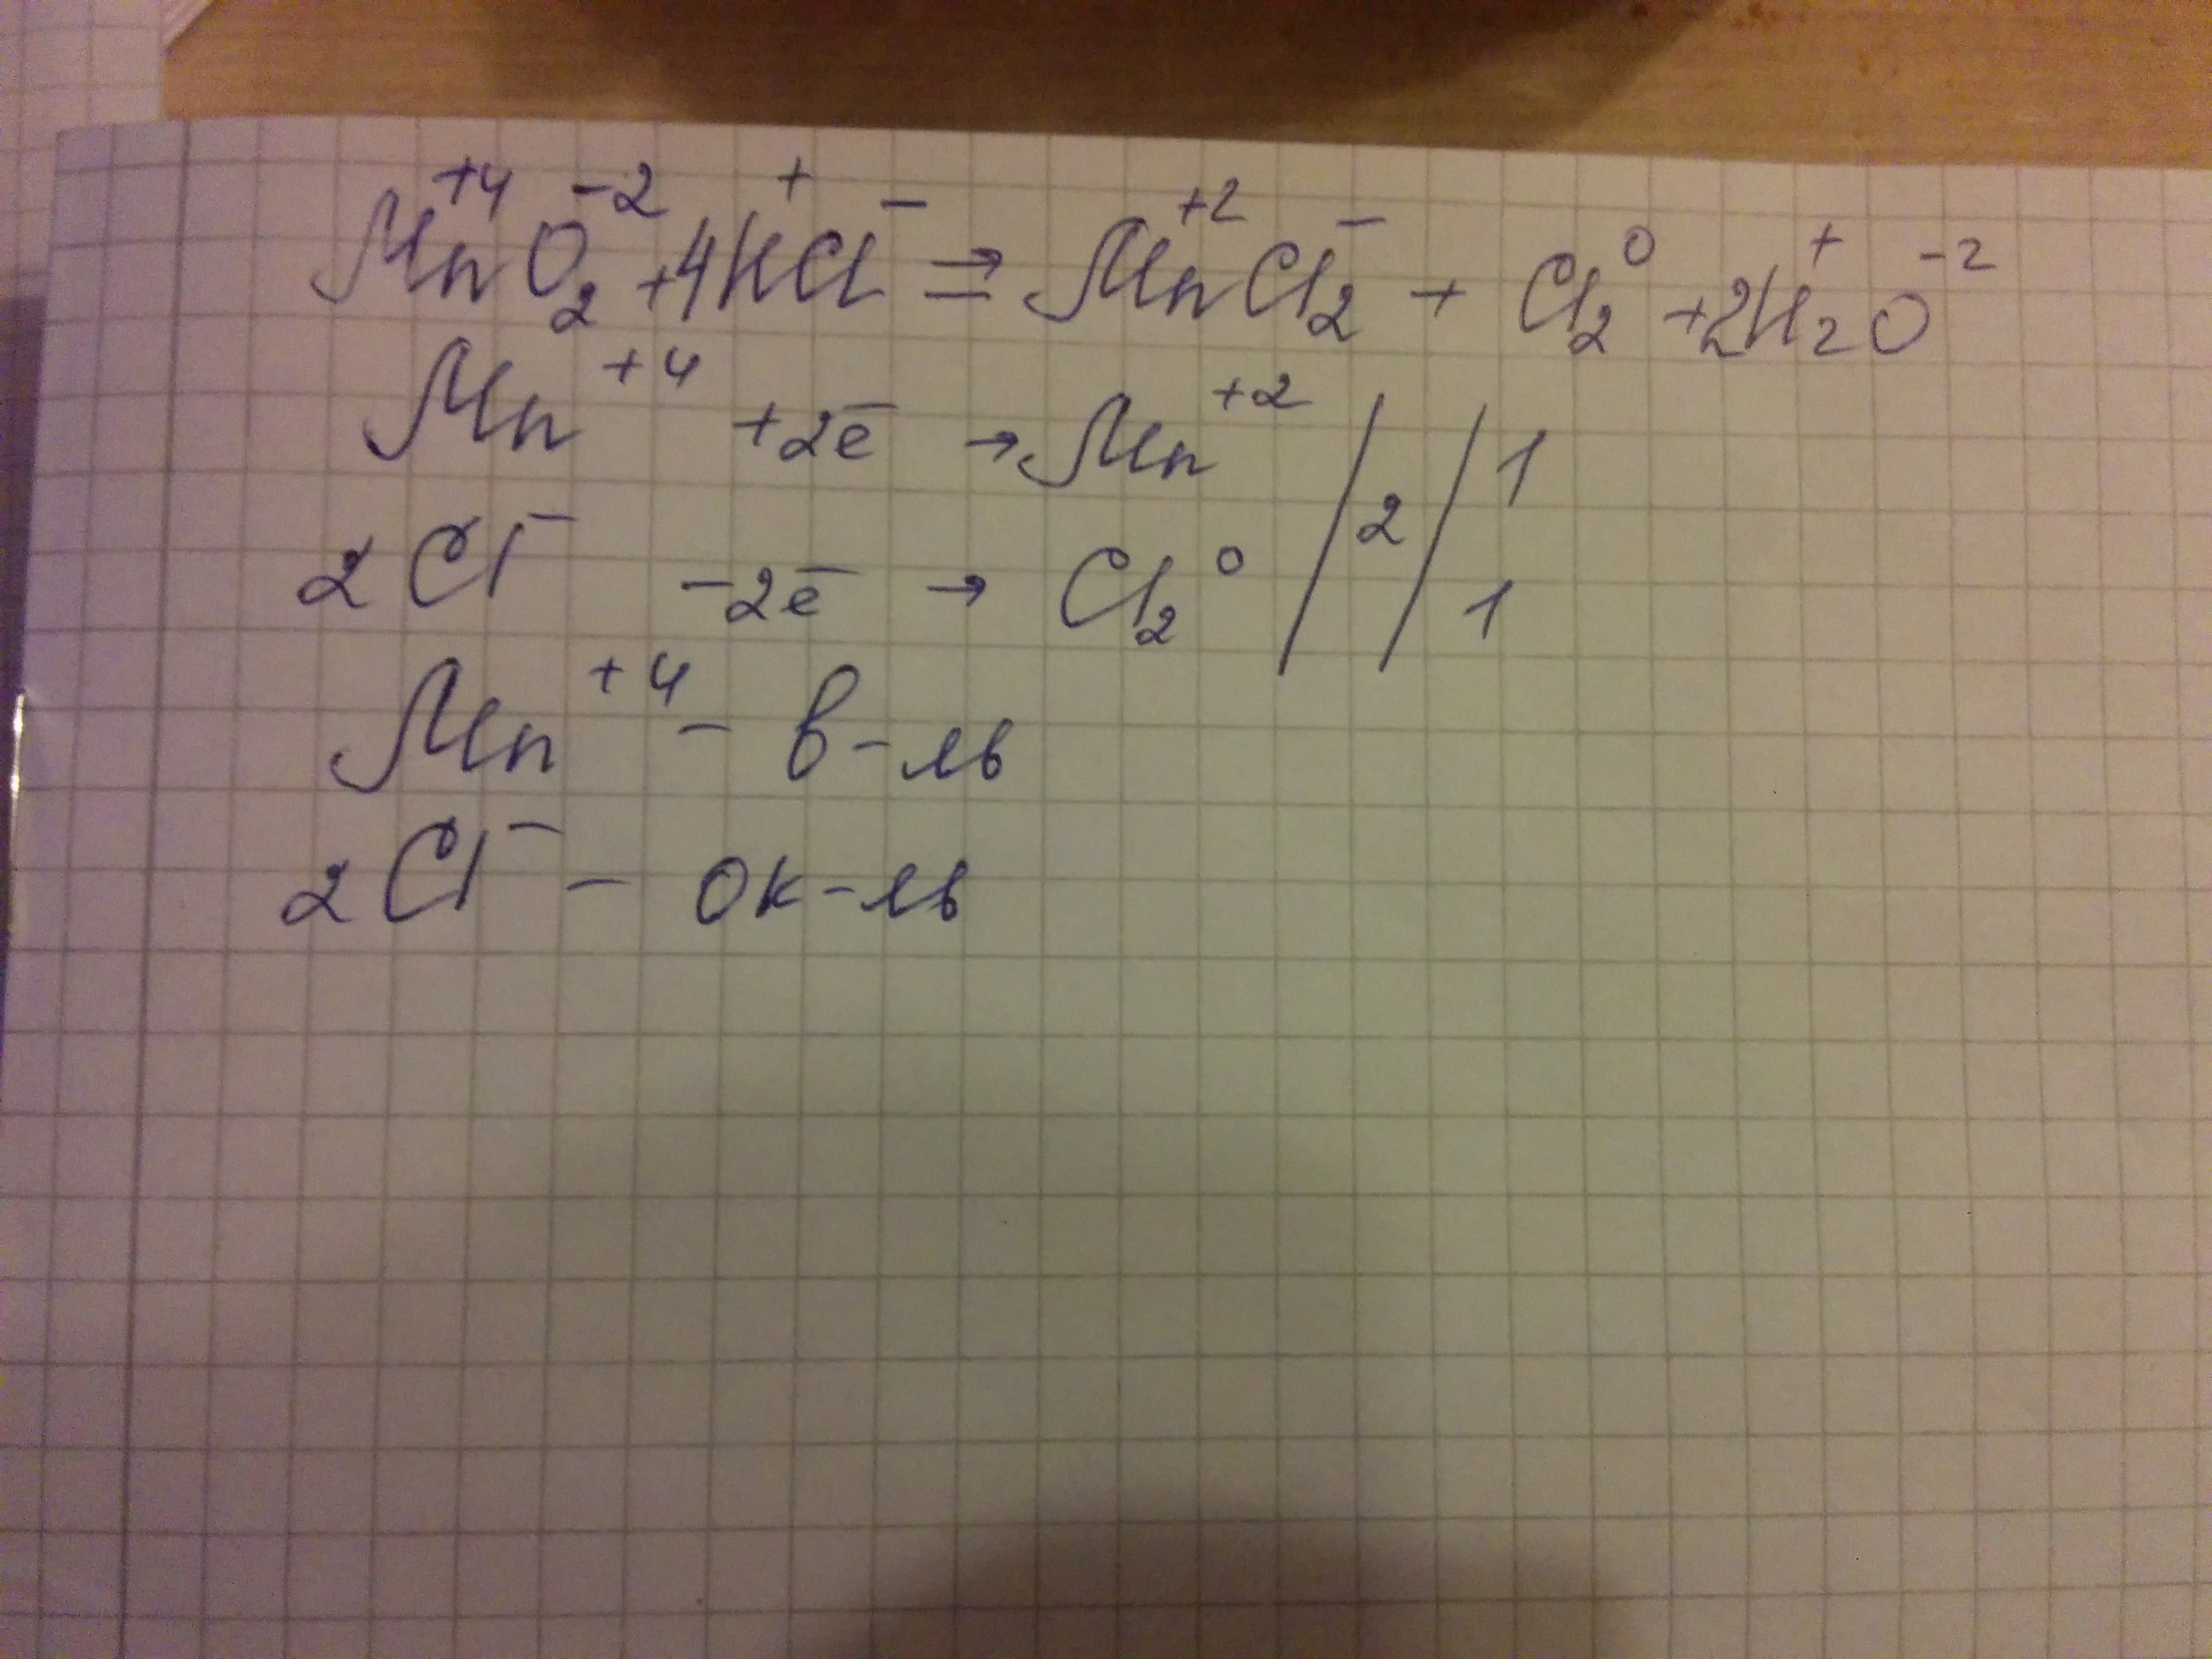 Mn⁺⁴O₂⁻² + 4H⁺Cl⁻ ⇒ Mn⁺²Cl₂⁻ + Cl₂⁰ + 2H₂⁺O⁻²
Mn⁺⁴ +2ē → Mn⁺² / 2 / 1
2Cl⁻ -2ē → Cl₂⁰ / / 1
Mn⁺⁴ - в-ль
2Cl⁻ - ок-ль